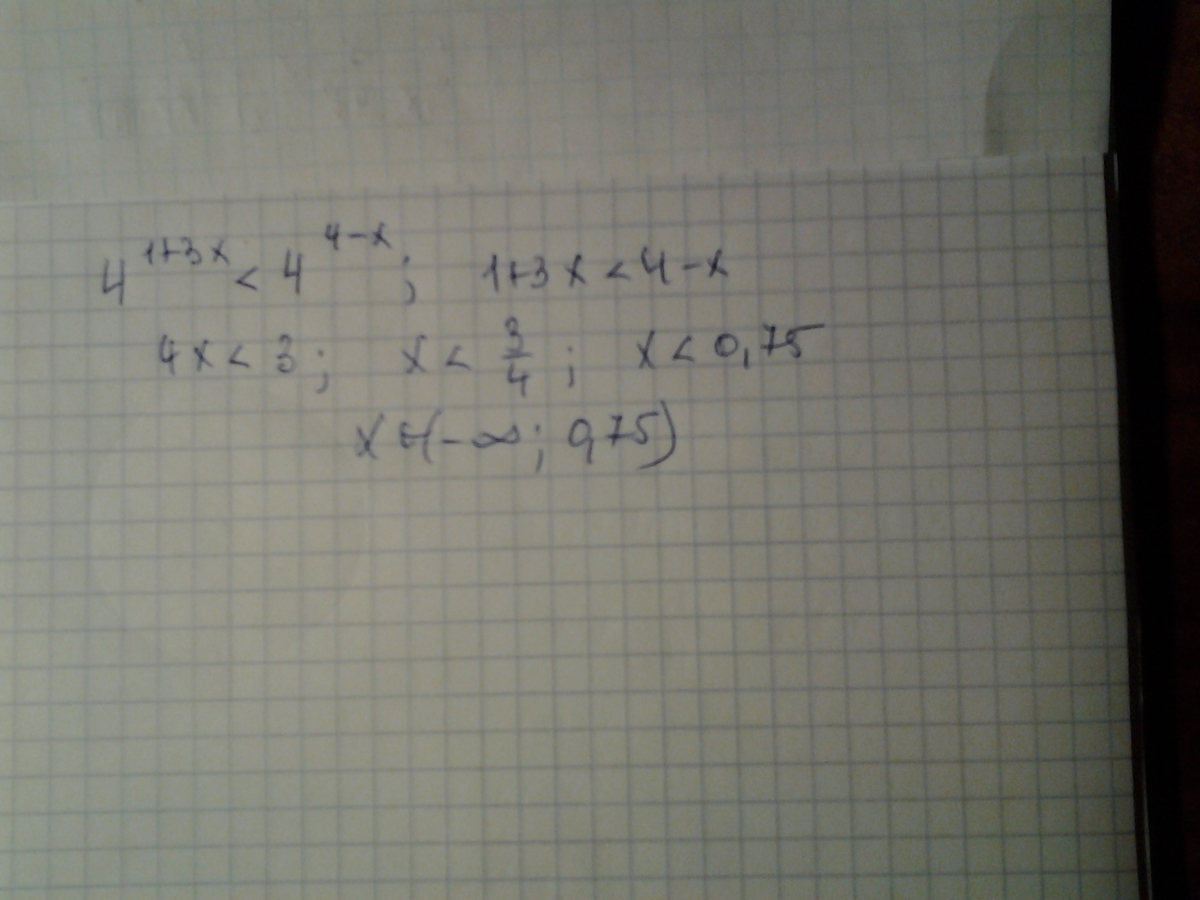 4^{1+3x} < 4^{4-x}; 1+3x < 4-x
4x < 3; x < \frac{3}{4}; x < 0,75
x ∈ (-∞; 0,75)